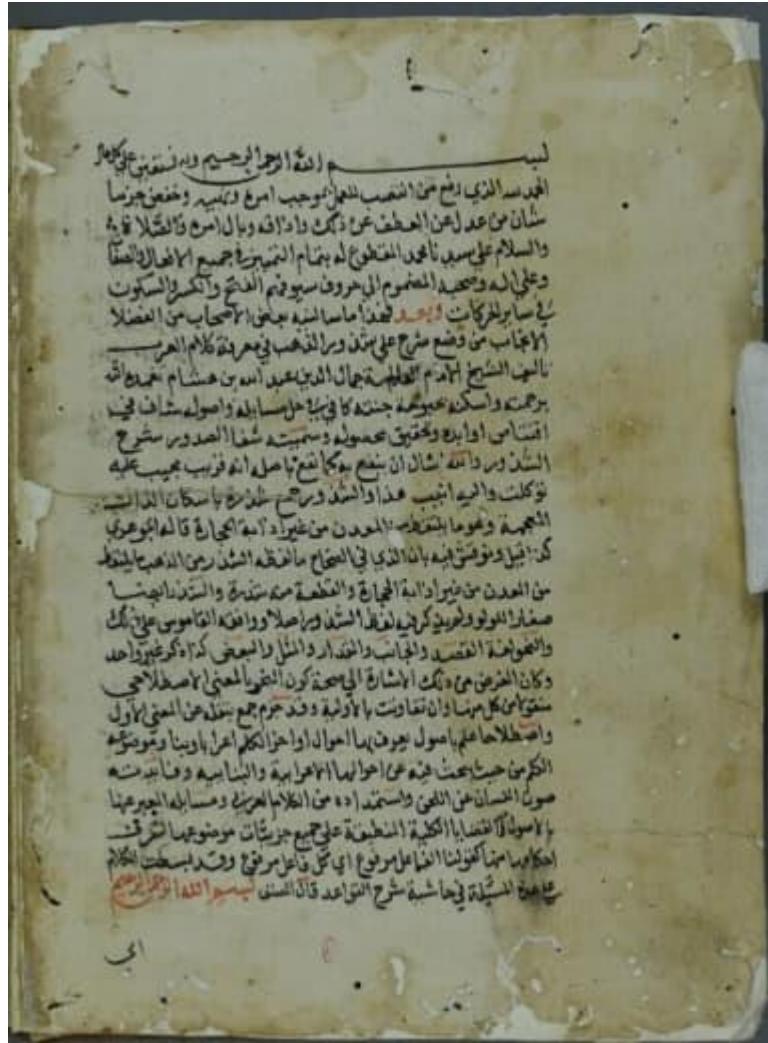 بسم الله الرحمن الرحيم وبه نستعين على كل حال
الحمد لله الذي رفع من انتصب للعمل بموجب امره ونهيه وخفض جزما
شان من عدل عن العطف عن ذلك واذاقه وبال امره والصلاة
والسلام على سيدنا محمد المقطوع له بتمام التمييز في جميع الافعال والصفات
وعلى اله وصحبه المضموم الى حروف سيوفهم الفتح والكسر والسكون
في ساير الحركات وبعد فهذا ما سالنيه بعض الاصحاب من الفضلا
الانجاب من وضع شرح على شذور الذهب في معرفة كلام العرب
تاليف الشيخ الامام العلامة جمال الدين عبد الله بن هشام تغمده الله
برحمته واسكنه بحبوحة جنته كافي في حل مسايله واصوله شاف في
اقتناص اوابده وتحقيق محصوله وسميته شفا الصدور بشرح
الشذور والله اسال ان ينفع به كما نفع باصله انه قريب مجيب عليه
توكلت واليه انيب هذا والشذور جمع شذرة باسكان الذال
المعجمة وهو ما يلتقط من المعدن من غير اذابة الحجارة قاله الجوهري
كذا قيل ونوقش فيه بان الذي في الصحاح ما لفظه الشذر من الذهب ما يلتقط
من المعدن من غير اذابة الحجارة والقطعة منه شذرة والشذر ايضا
صغار اللولو ولم يذكر فيه لفظ الشذور اصلا ووافقه القاموس على ذلك
والنحو لغة القصد والجانب والمقدار والمثل والبعض كذا ذكر غير واحد
وكان الغرض من ذلك الاشارة الى صحة كون النحو بالمعنى الاصطلاحي
منقولا من كل منها وان تفاوتت بالاولية وقد جزم جمع بنقله عن المعنى الاول
واصطلاحا علم باصول يعرف بها احوال اواخر الكلم اعرابا وبنا وموضوعه
الكلم من حيث يبحث فيه عن احوالها الاعرابية والبنائية وفايدته
صون اللسان عن اللحن واستمداده من الكلام العربي ومسايله المعبر عنها
بالاصول كالقضايا الكلية المنطبقة على جميع جزئيات موضوعها لتعرف
احكامها منها كقولنا الفاعل مرفوع اي كل فاعل مرفوع وقد بسطت الكلام
على هذه المسئلة في حاشية شرح القواعد قال المصنف بسم الله الرحمن الرحيم
اي